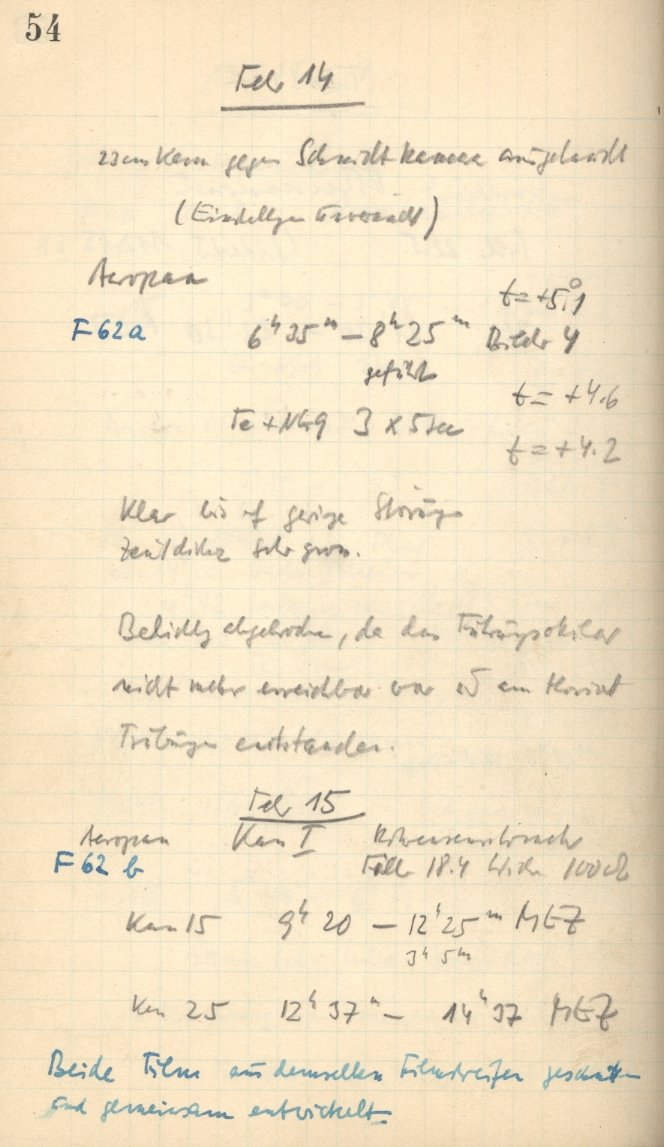 54
Febr 14
23cm Kam gegen Schmidt Kamera ausgetauscht
(Einstellgen
Aeropan
t = +5.°1
F62a 6ʰ35ᵐ – 8ʰ25ᵐ Bilder 4
geführt
t = +4.6
3 x 5 sec
t = +4.2
Klar bis auf geringe Störung
sehr gross.
Belichtg abgebrochen, da das Führungsokular
nicht mehr erreichbar war und am Horizont
Trübungen entstanden.
Febr 15
Aeropan Kam I
F62b 18.4 100
Kam 15 9ʰ20 – 12ʰ25ᵐ MEZ
3ʰ 5ᵐ
Kam 25 12ʰ37ᵐ – 14ʰ37 MEZ
Beide Filme aus demselben Filmstreifen geschnitten
und gemeinsam entwickelt